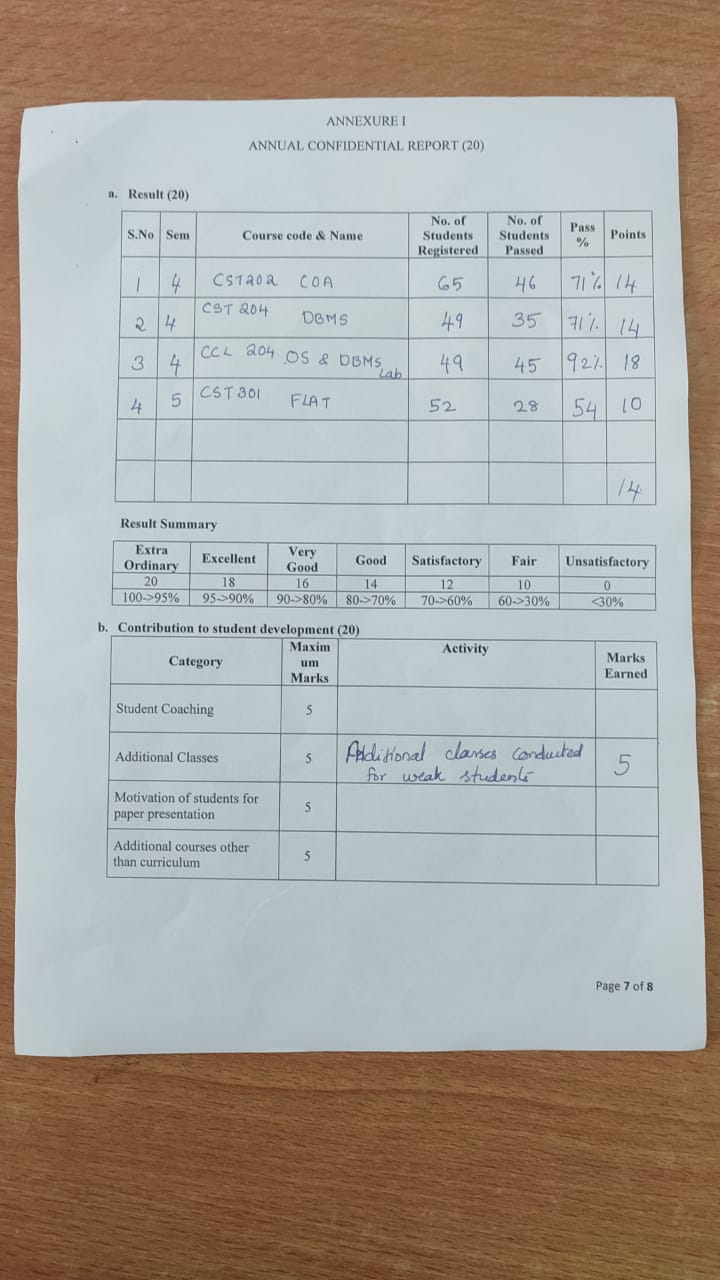 ANNEXURE I
ANNUAL CONFIDENTIAL REPORT (20)
a. Result (20)
S.No Sem Course code & Name No. of Students Registered No. of Students Passed Pass % Points
1 4 CST202 COA 65 46 71% 14
2 4 CST 204 DBMS 49 35 71% 14
3 4 CCL 204 OS & DBMS Lab 49 45 92% 18
4 5 CST301 FLAT 52 28 54 10
14
Result Summary
Extra Ordinary Excellent Very Good Good Satisfactory Fair Unsatisfactory
20 18 16 14 12 10 0
100->95% 95->90% 90->80% 80->70% 70->60% 60->30% <30%
b. Contribution to student development (20)
Category Maxim um Marks Activity Marks Earned
Student Coaching 5
Additional Classes 5 Additional classes conducted for weak students 5
Motivation of students for paper presentation 5
Additional courses other than curriculum 5
Page 7 of 8